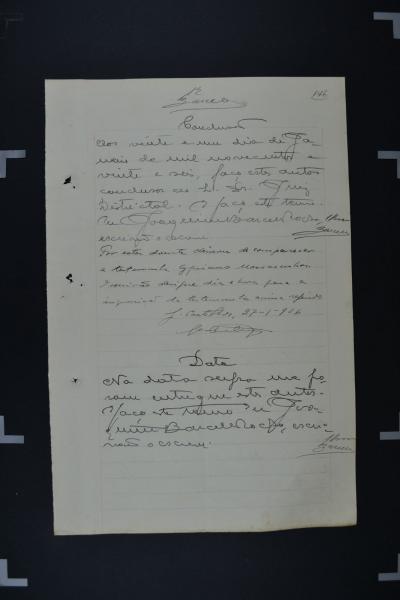 146
Conclusão
Aos vinte e um dia de Ja-
neiro de mil novecentos e
vinte e seis, faço estes autos
conclusos ao Sr. Dr. Juiz
Districtal. Faço este termo.
Eu Joaquim Barcellos
escrivão o escrevi
Por estar doente deixou de comparecer
a testemunha Cypriano
O escrivão designe dia e hora para a
inquirição da testemunha acima
27-1-926
Data
Na data supra me fo-
ram entregue estes autos.
Faço este termo Eu Joa-
quim Barcellos, escri-
vão o escrevi.